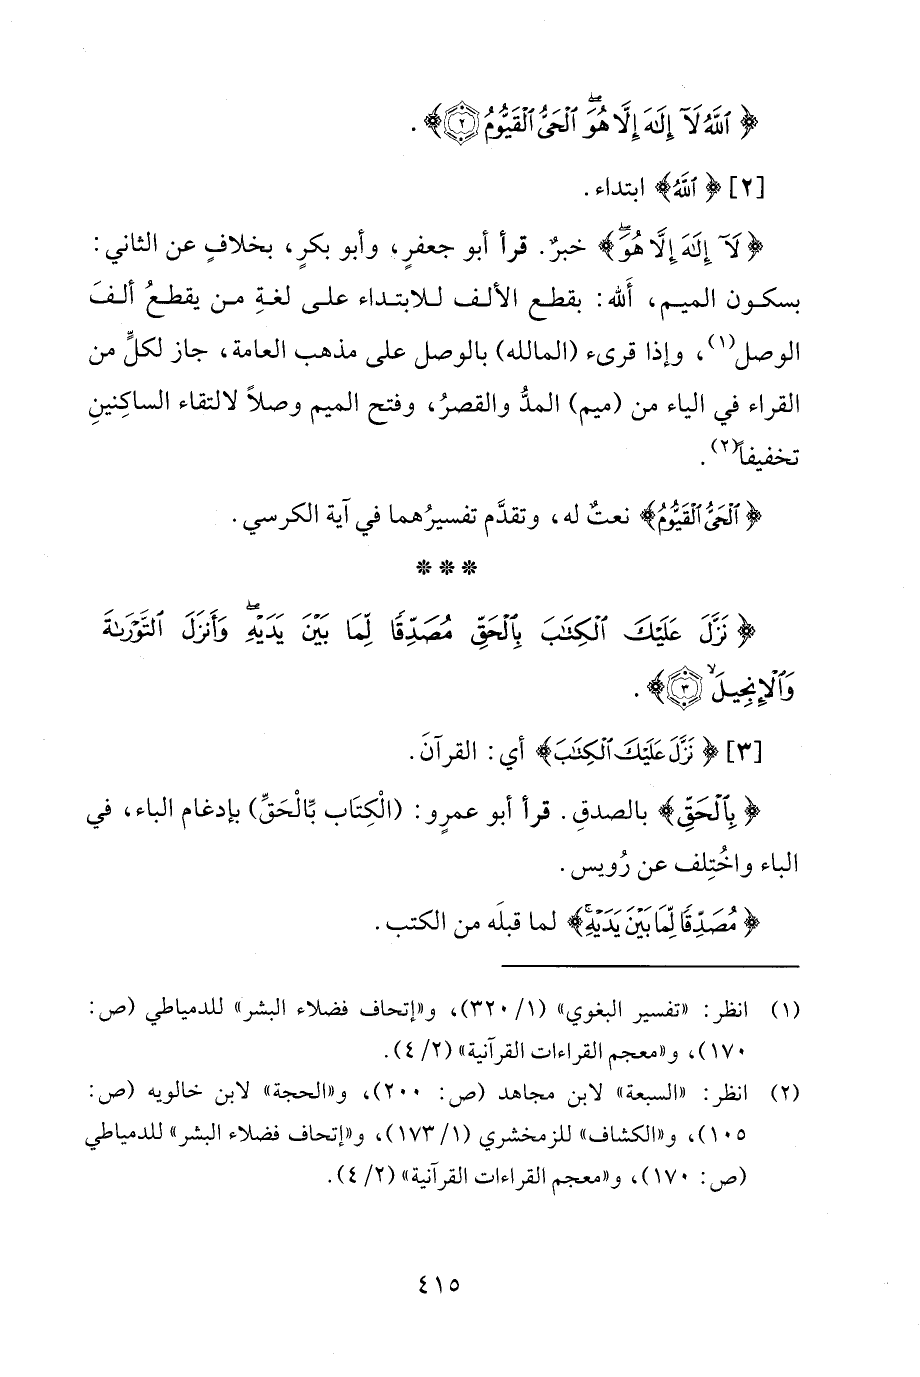 ﴿ ٱللَّهُ لَآ إِلَٰهَ إِلَّا هُوَۖ ٱلْحَىُّ ٱلْقَيُّومُ ٢﴾ .
[٢] ﴿ ٱللَّهُ﴾ ابتداء .
﴿ لَآ إِلَٰهَ إِلَّا هُوَۖ﴾ خبرٌ. قرأ أبو جعفرٍ، وأبو بكرٍ، بخلافٍ عن الثاني :
بسكون الميم، ألله : بقطع الألف للابتداء على لغةِ من يقطعُ ألفَ
الوصل(١)، وإذا قرىء (المالله) بالوصل على مذهب العامة، جاز لكلٍّ من
القراء في الياء من (ميم) المدُّ والقصرُ، وفتح الميم وصلاً لالتقاء الساكِنينِ
تخفيفاً(٢) .
﴿ ٱلْحَىُّ ٱلْقَيُّومُ﴾ نعتٌ له، وتقدَّم تفسيرُهما في آية الكرسي .
***
﴿ نَزَّلَ عَلَيْكَ ٱلْكِتَٰبَ بِٱلْحَقِّ مُصَدِّقًا لِّمَا بَيْنَ يَدَيْهِۖ وَأَنزَلَ ٱلتَّوْرَىٰةَ
وَٱلْإِنجِيلَۙ ٣﴾ .
[٣] ﴿ نَزَّلَ عَلَيْكَ ٱلْكِتَٰبَ﴾ أي : القرآنَ.
﴿ بِٱلْحَقِّ﴾ بالصدقِ. قرأ أبو عمرٍو : (الْكِتَاب بِّالْحَقِّ) بإدغام الباء، في
الباء واختُلف عن رُويس .
﴿ مُصَدِّقًا لِّمَا بَيْنَ يَدَيْهِ﴾ لما قبلَه من الكتب .
(١) انظر: «تفسير البغوي» (١/ ٣٢٠)، و«إتحاف فضلاء البشر» للدمياطي (ص:
١٧٠)، و«معجم القراءات القرآنية» (٢/ ٤).
(٢) انظر: «السبعة» لابن مجاهد (ص: ٢٠٠)، و«الحجة» لابن خالويه (ص:
١٠٥)، و«الكشاف» للزمخشري (١/ ١٧٣)، و«إتحاف فضلاء البشر» للدمياطي
(ص: ١٧٠)، و«معجم القراءات القرآنية» (٢/ ٤).
٤١٥